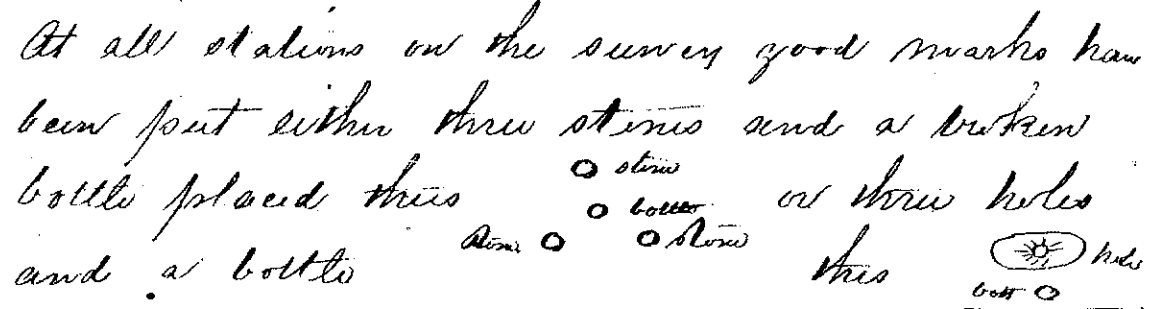 At all stations on the survey good marks have
been put either three stones and a broken
stone
bottle placed thus
bottle
or three holes
stone
stone
and a bottle
thus
hole
bott